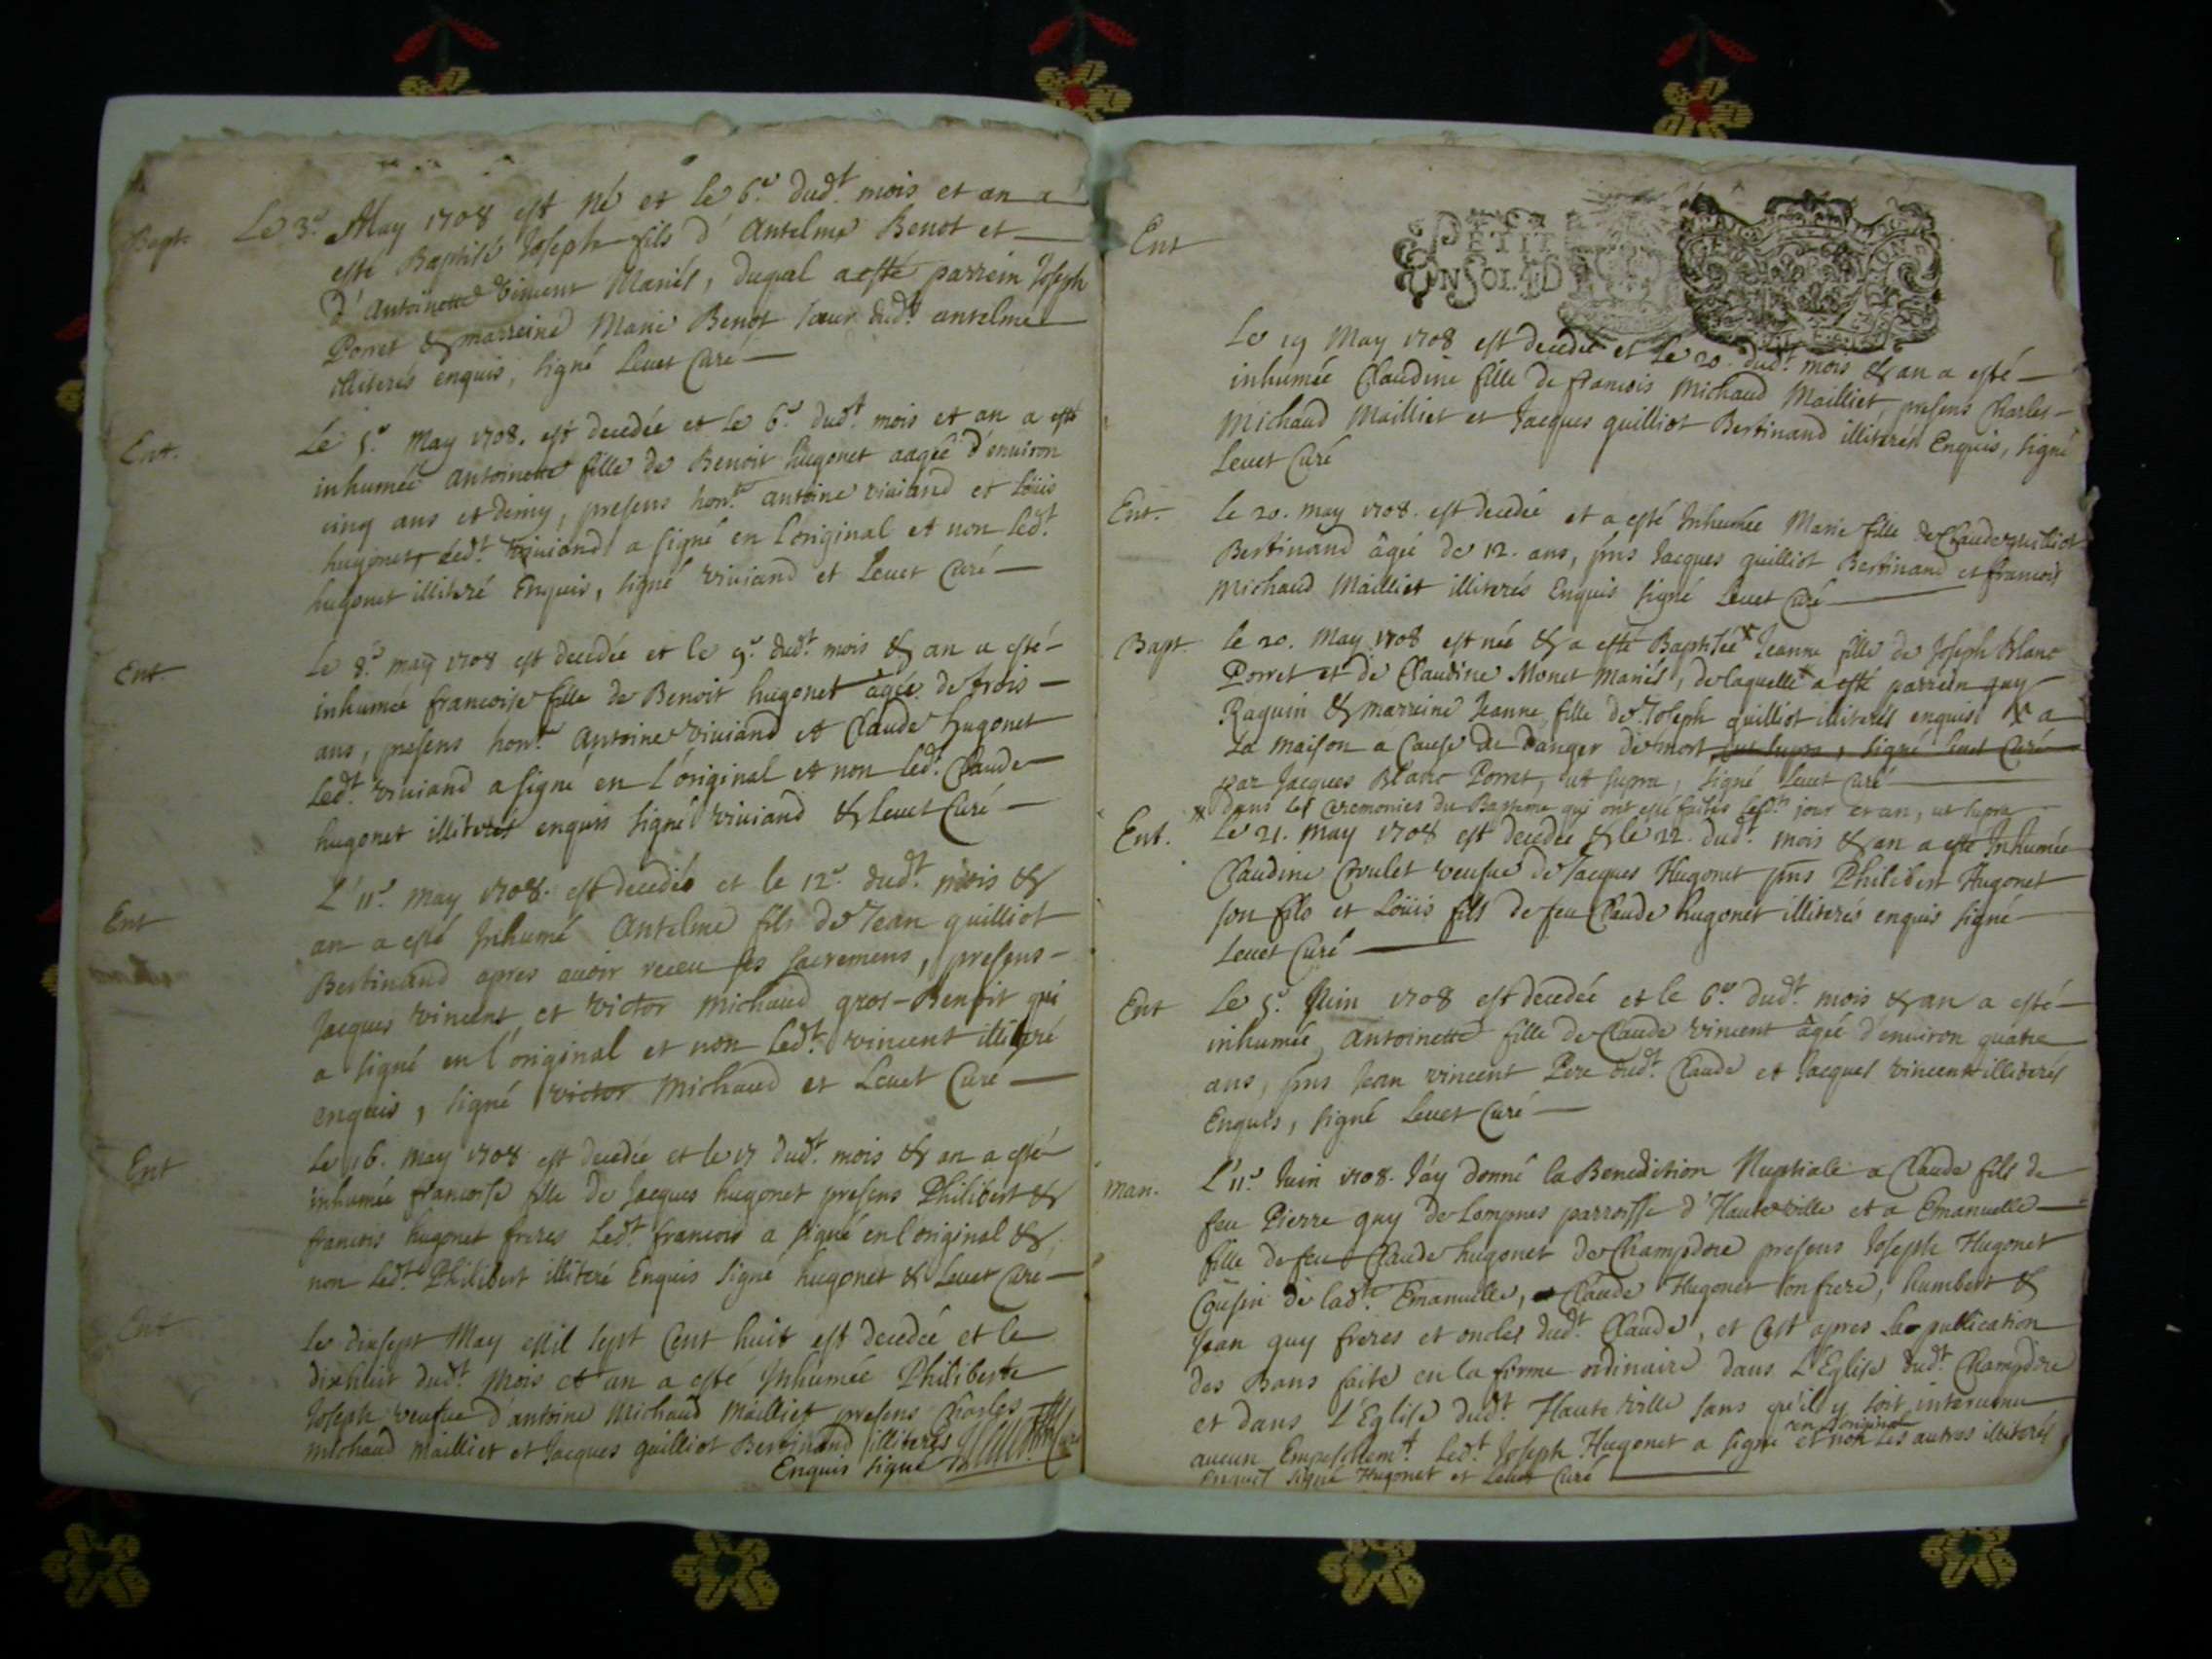 Bapt. Le 3.e May 1708 est né et le 6.e dud.t mois et an a
esté Baptisé Joseph fils d'Antelme Benot et
d'Antoinette Vincent Mariés, duquel a esté parrein Joseph
Porret & marreine Marie Benot sœur dud.t antelme
illiterés enquis, signé Levet Curé
Ent. Le 5.e May 1708. est decedée et le 6.e dud.t mois et an a esté
inhumée Antoinette fille de Benoit hugonet aagée d'environ
cinq ans et demy, presens hon.e antoine viviand et Loüis
hugonet, led.t viviand a signé en l'original et non led.t
hugonet illiteré Enquis, signé viviand et Levet Curé
Ent. Le 8.e may 1708 est decedée et le 9.e dud.t mois & an a esté
inhumée francoise fille de Benoit hugonet âgée de trois
ans, presens hon.e Antoine viviand et Claude hugonet
led.t viviand a signé en l'original et non led.t Claude
hugonet illiteré enquis signé viviand & Levet Curé
Ent L'11.e may 1708. est decedé et le 12.e dud.t mois &
an a esté Inhumé Antelme fils de Jean quilliot
Bertinand apres avoir receu les sacremens, presens
Jacques vincent, et victor michaud gros-Benoit qui
a signé en l'original et non led.t vincent illiteré
enquis, signé victor Michaud et Levet Curé
Ent Le 16. may 1708 est decedée et le 17 dud.t mois & an a esté
inhumée francoise fille de Jacques hugonet presens Philibert &
francois hugonet freres led.t francois a signé en l'original &
non led.t Philibert illiteré Enquis signé hugonet & Levet Curé
Ent Le dixsept May mil sept Cent huit est decedée et le
dixhuit dud.t mois et an a esté Inhumée Philiberte
Joseph veufue d'antoine Michaud Mailliet presens Charles
michaud mailliet et Jacques quilliot Bertinand illiterés
Enquis signé Levet Curé
Ent
PETIT
UN SOL 4 D
Le 19 May 1708 est decedée et Le 20. dud.t mois & an a esté
inhumée Claudine fille de francois Michaud Mailliet, presens Charles
Michaud Mailliet et Jacques quilliot Bertinand illiterés Enquis, signé
Levet Curé
Ent. le 20. may 1708. est decedée et a esté Inhumée Marie fille de Claude quilliot
Bertinand âgée de 12. ans, pns Jacques quilliot Bertinand et francois
Michaud Mailliet illiterés Enquis signé Levet Curé
Bapt. le 20. May 1708 est née & a esté Baptisée x Jeanne fille de Joseph Blanc
Porret et de Claudine Monet Mariés, de laquelle * a esté parrein guy
Raguin & marreine Jeanne fille de Joseph quilliot illiterés enquis x a
la maison a Cause du danger de mort ut supra, signé Levet Curé
par Jacques Blanc Porret, ut supra, signé Levet Curé
* dans les ceremonies du Bapteme qui ont esté faites lesd.ts jour et an, ut supra
Ent. Le 21. may 1708 est decedée & le 22. dud.t mois & an a esté Inhumée
Claudine Crulet veufue de Jacques Hugonet pns Philibert Hugonet
son fils et Loüis fils de feu Claude hugonet illiterés enquis signé
Levet Curé
Ent Le 5.e Juin 1708 est decedée et le 6.e dud.t mois & an a esté
inhumée, Antoinette fille de Claude vincent âgée d'environ quatre
ans, pns Jean vincent Pere dud.t Claude et Jacques vincent illiterés
Enquis, signé Levet Curé
Mar. L'11.e Juin 1708. J'ay donné la Benediction Nuptiale a Claude fils de
feu Pierre guy de Lompnes parroisse d'Hauteville et a Emanuelle
fille de feu Claude hugonet de Champdore presens Joseph Hugonet
Cousin de lad.te Emanuelle, Claude Hugonet son frere, humbert &
Jean guy freres et oncles dud.t Claude, et C'est apres la publication
des Bans faite en la forme ordinaire dans L'Eglise dud.t Champdore
et dans L'Eglise dud.t Haute ville sans qu'il y soit intervenu
aucun Empeschem.t led.t Joseph Hugonet a signé en l'original et non les autres illiterés
enquis signé Hugonet et Levet Curé